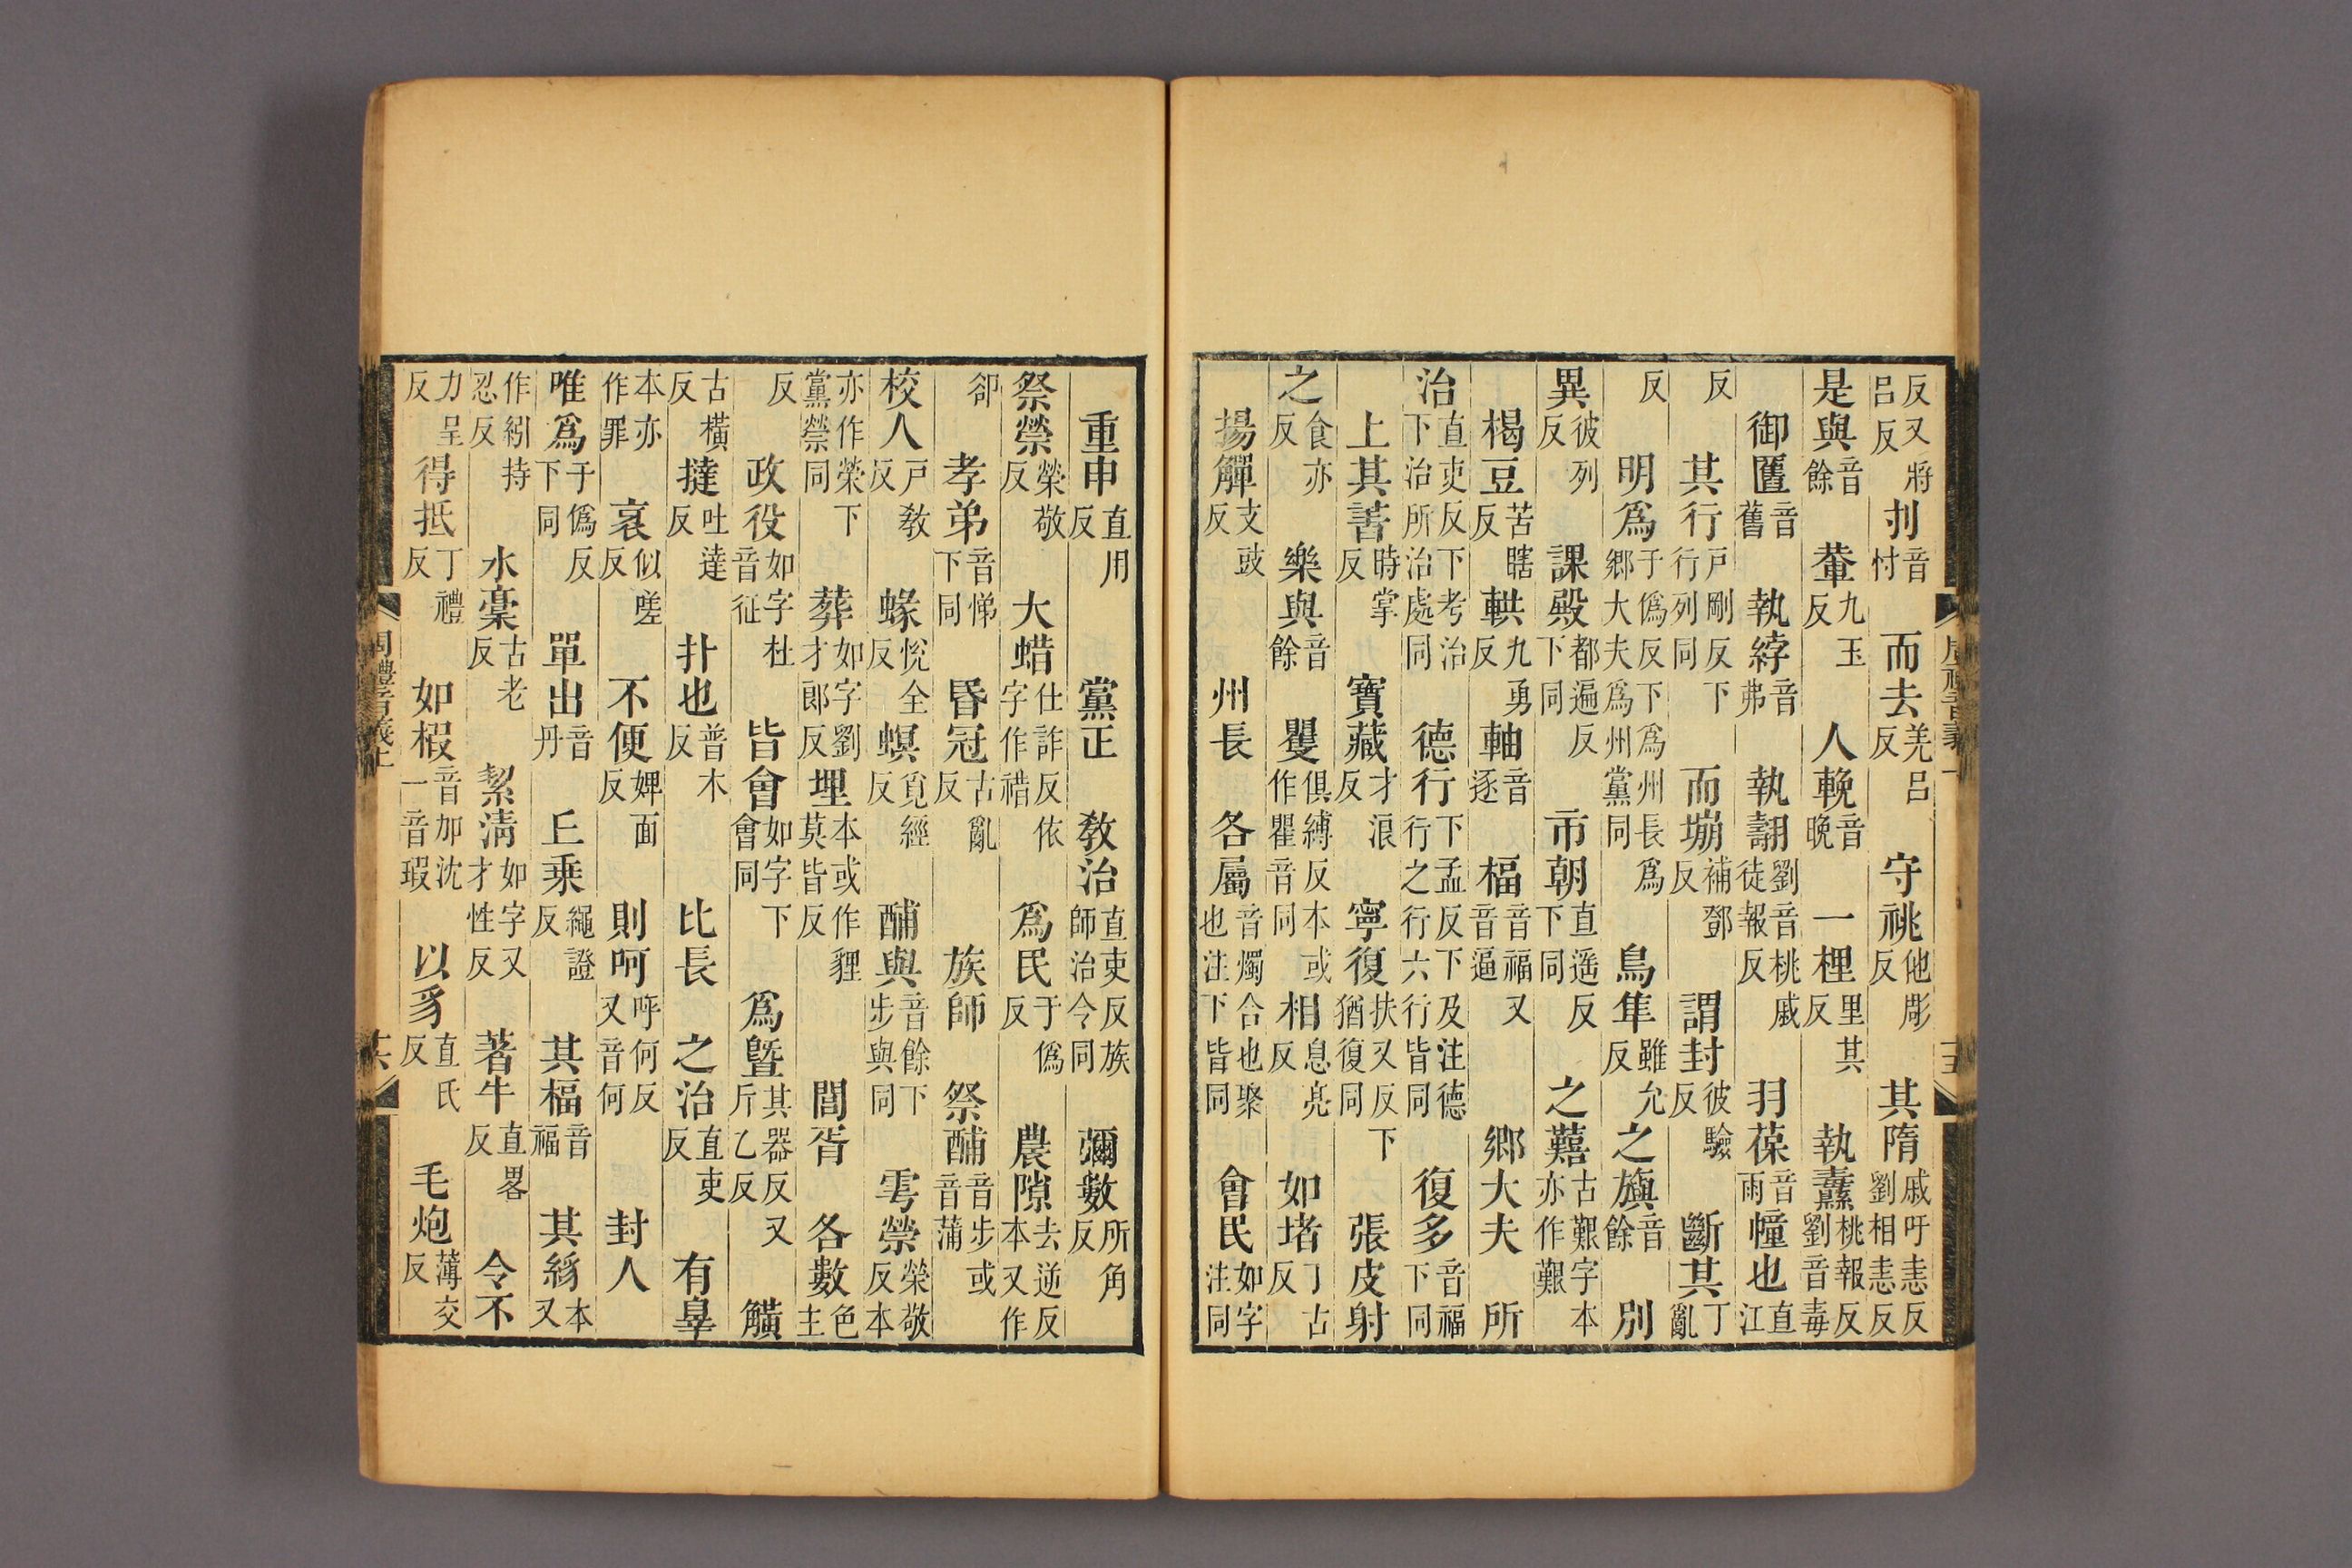 反又將呂反刌音忖而去羌呂反守祧他彫反其隋戚吁恚反劉相恚反
是與音餘輂九玉反人輓音晚一梩里其反執纛桃報反劉音毒
御匶音舊執綍音弗執翿劉音桃戚徒報反羽葆音雨幢也直江
反其行戶剛反下行列同而堋補鄧反謂封彼驗反斷其丁亂
反明爲于僞反下爲州長爲鄉大夫爲州黨同鳥隼雖允反之旟音餘別
異彼列反課殿都遍反下同市朝直遥反下同之囏古艱字本亦作艱
楬豆苦瞎反輁九勇反軸音逐楅音福又音逼鄉大夫所
治直吏反下考治下治所治處同德行下孟反下及注德行之行六行皆同復多音福下同
上其書時掌反寶藏才浪反寧復扶又反下猶復同張皮射
之食亦反樂與音餘矍俱縛反本或作瞿音同相息亮反如堵丁古反
揚觶支豉反州長各屬音燭合也聚也注下皆同會民如字注同
重申直用反黨正教治直吏反族師治令同彌數所角反
祭禜榮敬反大蜡仕詐反依字作䄍爲民于僞反農隙去逆反本又作
郤孝弟音悌下同昏冠古亂反族師祭酺音步或音蒲
校人戶敎反蝝悅全反螟覓經反酺與音餘下步與同雩禜榮敬反本
亦作榮下黨禜同葬如字劉才郎反埋本或作貍莫皆反閭胥各數色主
反政役如字杜音征皆會如字下會同爲曁其器反又斤乙反觵
古橫反撻吐達反扑也普木反比長之治直吏反有辠
本亦作罪衺似嗟反不便婢面反則呵呼何反又音何封人
唯爲于僞反下同單出音丹丘乘繩證反其楅音福其絼本又
作紖持忍反水稾古老反絜清如字又才性反著牛直畧反令不
力呈反得抵丁禮反如椵音加沈一音瑕以豸直氏反毛炮薄交反
周禮音義上
十六